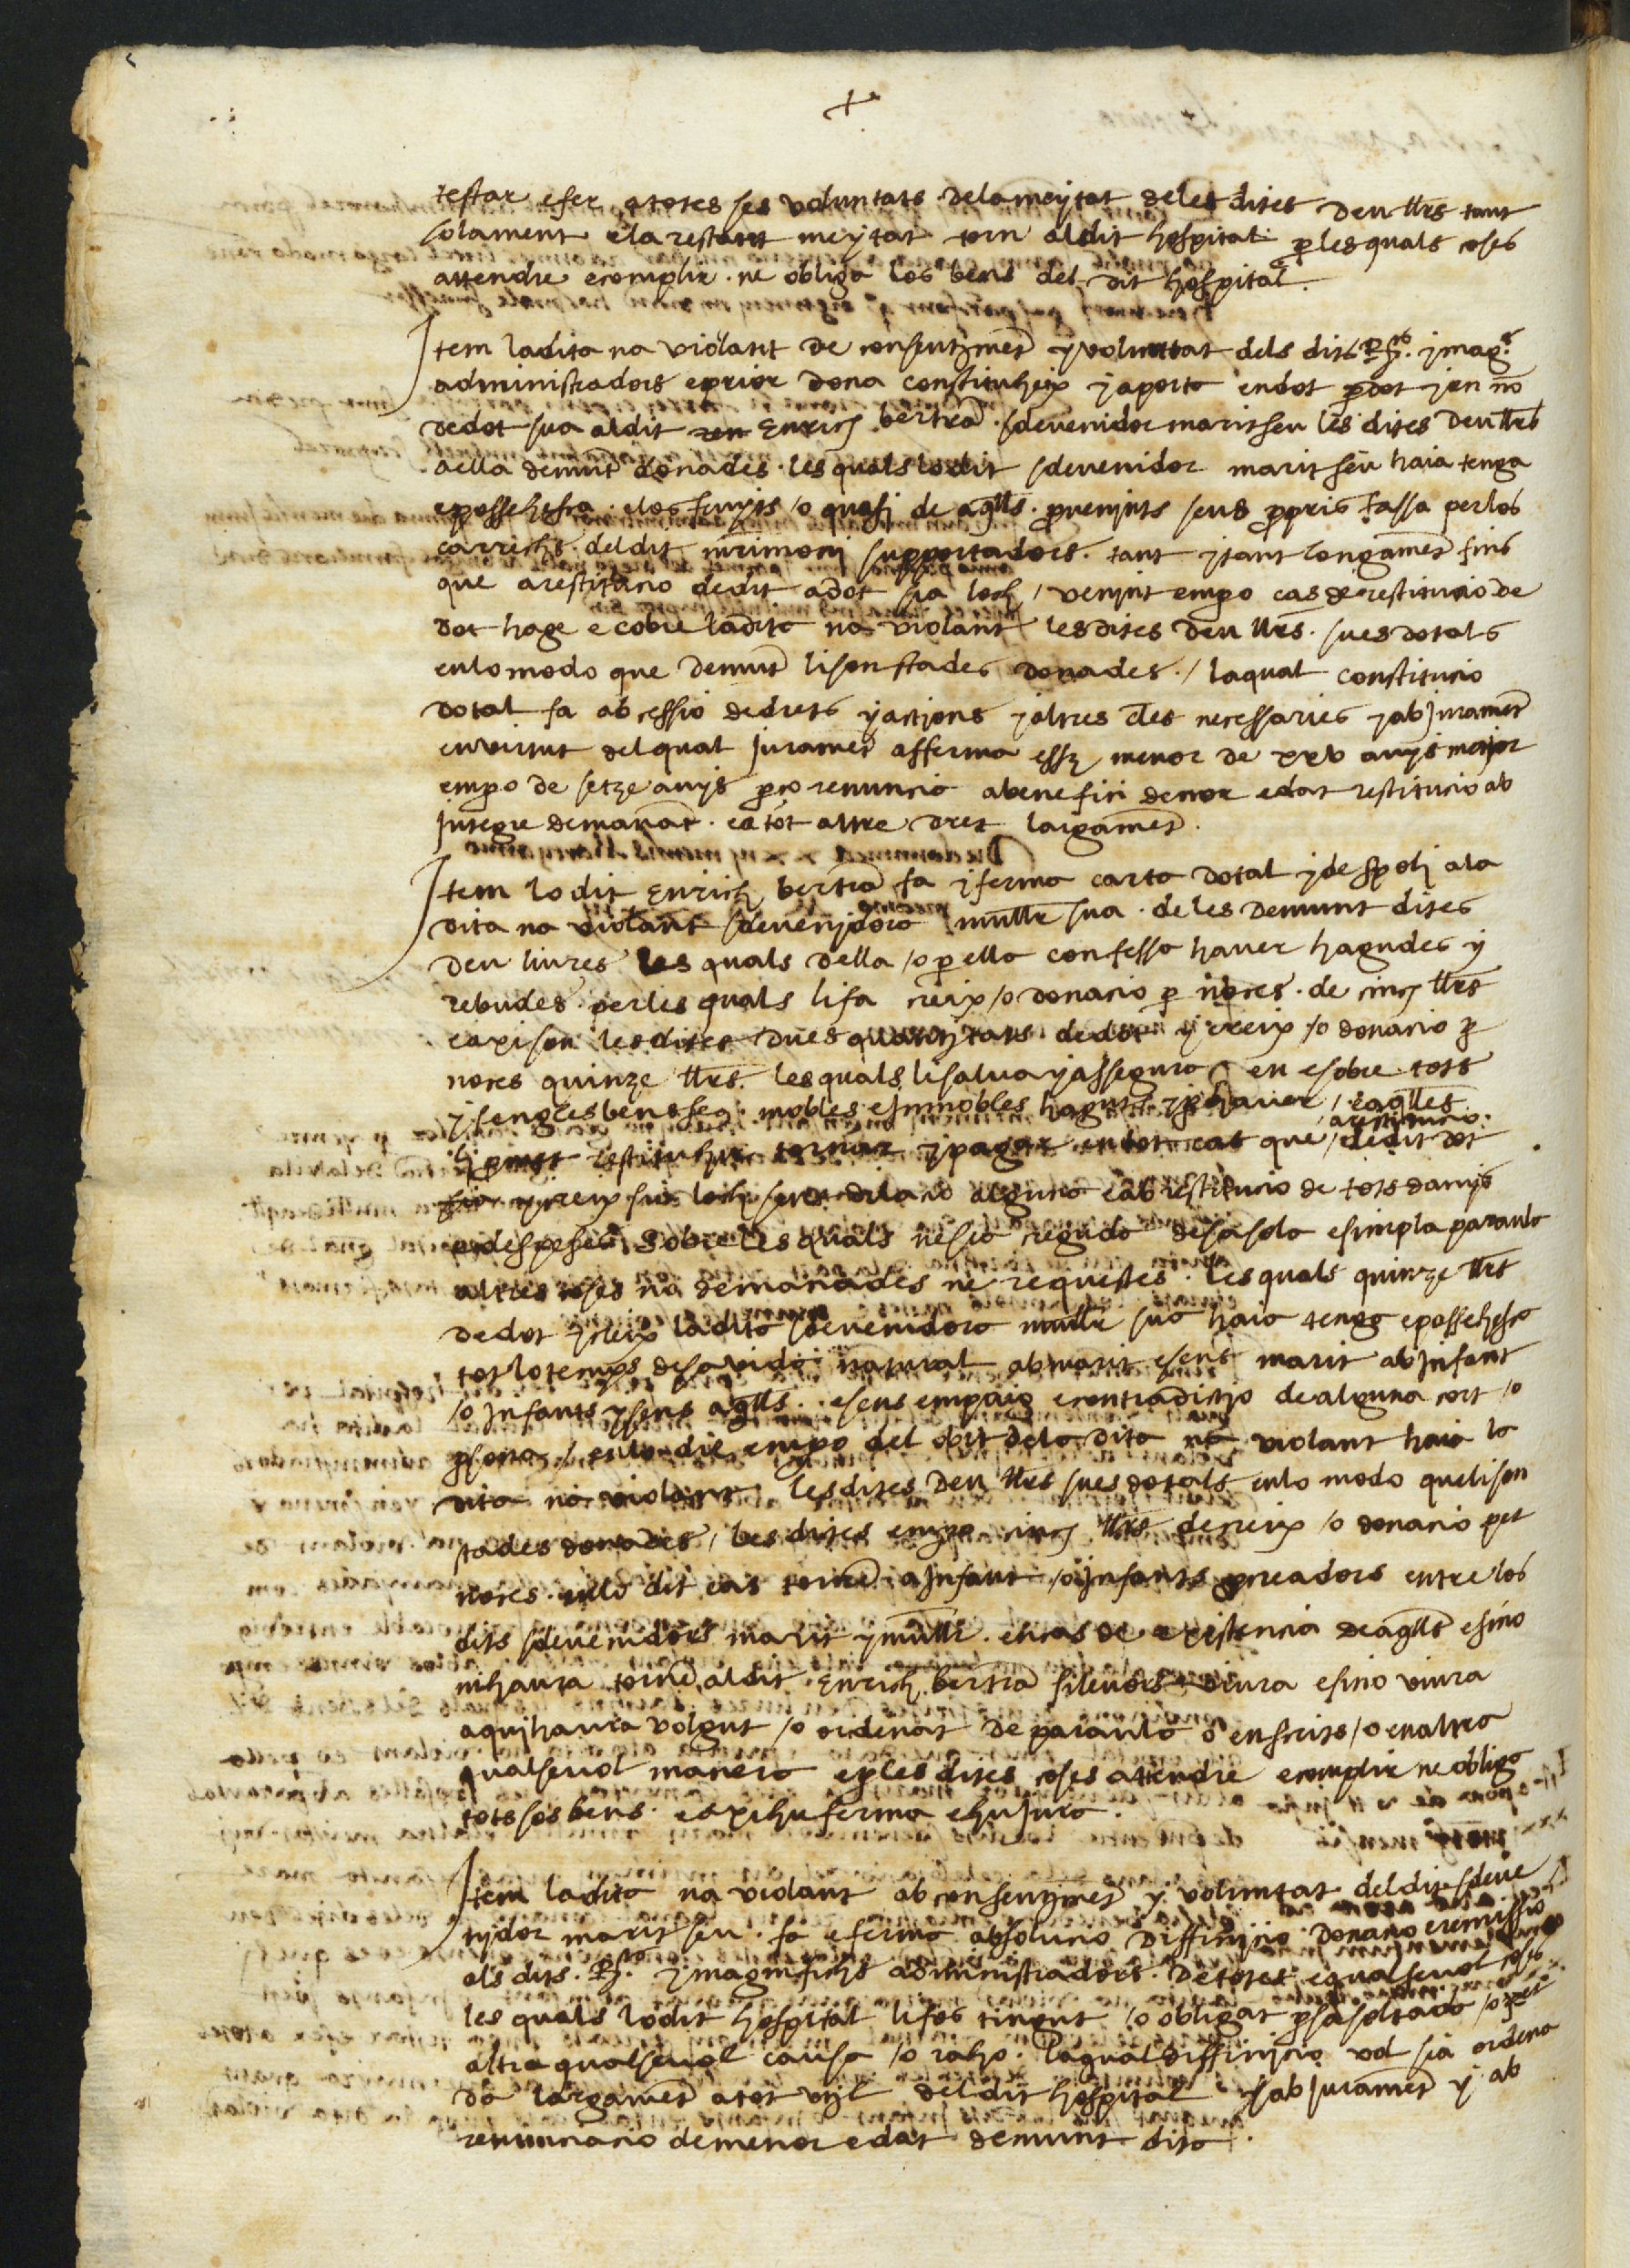 +
testar e fer a totes ses voluntats dela meytat deles dites Deu llrs tant
solament e la restant meytat torn aldit hospital. p les quals coses
attendre e complir. ne obliga los bens del dit hospital.
Item ladita na violant de consentiment y voluntat dels dits Rts. y magchs
administradors e prior dona constituheix y aporta endot p dot y en nō
dedot sua aldit Enrich bertrā. sdevenidor marit seu les dites Deu llrs
aella demūt donades. les quals lodit sdevenidor marit seu haia tenga
e possehesca. e los fruyts /o quasi de aqlls. pvenints seus ppris fassa per los
carrechs. deldit mrimoni supportadors. tant y tant longamēt fins
que a restitucio dedit adot sia loch / venint empo cas de restitucio de
dot hage e cobre ladita na violant les dites Deu llrs. sues dotals
enlo modo que Demūt li son stades donades. / laqual constitucio
dotal fa ab cessio de drets y actions y altres cles necessaries y ab Juramēt
en virtut del qual Juramēt afferma esser menor de xxv anys major
empo de setze anys pço renuncia a benefici de nor edat restitucio ab
Integre demanāt. e a tot altre dret largamēt.
Item lodit Enrich bertrā fa y ferma carta dotal y de spoli ala
dita na violant sdevenidora mullr sua. de les Demunt dites
Deu liures les quals della /o p ella confessa haver hagudes y
rebudes. per les quals li fa creix /o donacio p noces. de cinch llrs
e axi son les dites dues quantitats. de dot y creix /o donacio p
noces quinze llrs. les quals li salua y assegura en e sobre tots
y sengles bens seus. mobles e Inmobles haguts y p haver / e aqlles
li pmet restituhir tornar y pagar en tot cas que / a restitucio. dedit dot
y creix sia loch sens dilacio alguna e ab restitucio de tots danys
e despeses sobre les quals ne sia creguda de sa sola e simpla paraula
altres coses no demanades ne requestes. les quals quinze llrs
de dot y creix ladita sdevenidora mullr sua haia tenga e possehesca
tot lo temps de sa vida natural ab marit e sens marit ab Infant
/o Infants y sens aqlls. e sens empaig e contradictio de alguna cort /o
psona / enlo die empo del obit dela dita na violant haia la
dita na violant les dites Deu llrs sues dotals enlo modo que li son
stades donades / les dites empo cinch llrs de creix /o donacio per
noces. enlo dit cas tornē a Infant /o Infants pcreadors entre los
dits sdevenidors marit y mullr. en cas de existencia de aqlls e sino
ni haura tornē aldit Enrich bertrā si lauors viura e sino viura
a qui haura volgut /o ordenat de paraula o en scrits /o en altra
qualsevol manera e p les dites coses attendre e complir ne obliga
tots sos bens. e axi hu ferma e hu Jura.
Item ladita na violant ab consentimēt y voluntat deldit sdeve
nidor marit seu. fa e ferma absolucio Diffinicio Donacio e remissio
als dits. Rts. y magnifichs administradors. De totes e qualsevol coses
les quals lodit hospital li fos tingut /o obligat p sa soldada /o per
altra qualsevol causa /o raho. laqual diffinicio vol sia ordena
da largamēt a tot util deldit hospital y ab Juramēt y ab
renunciacio de menor edat demunt dita.